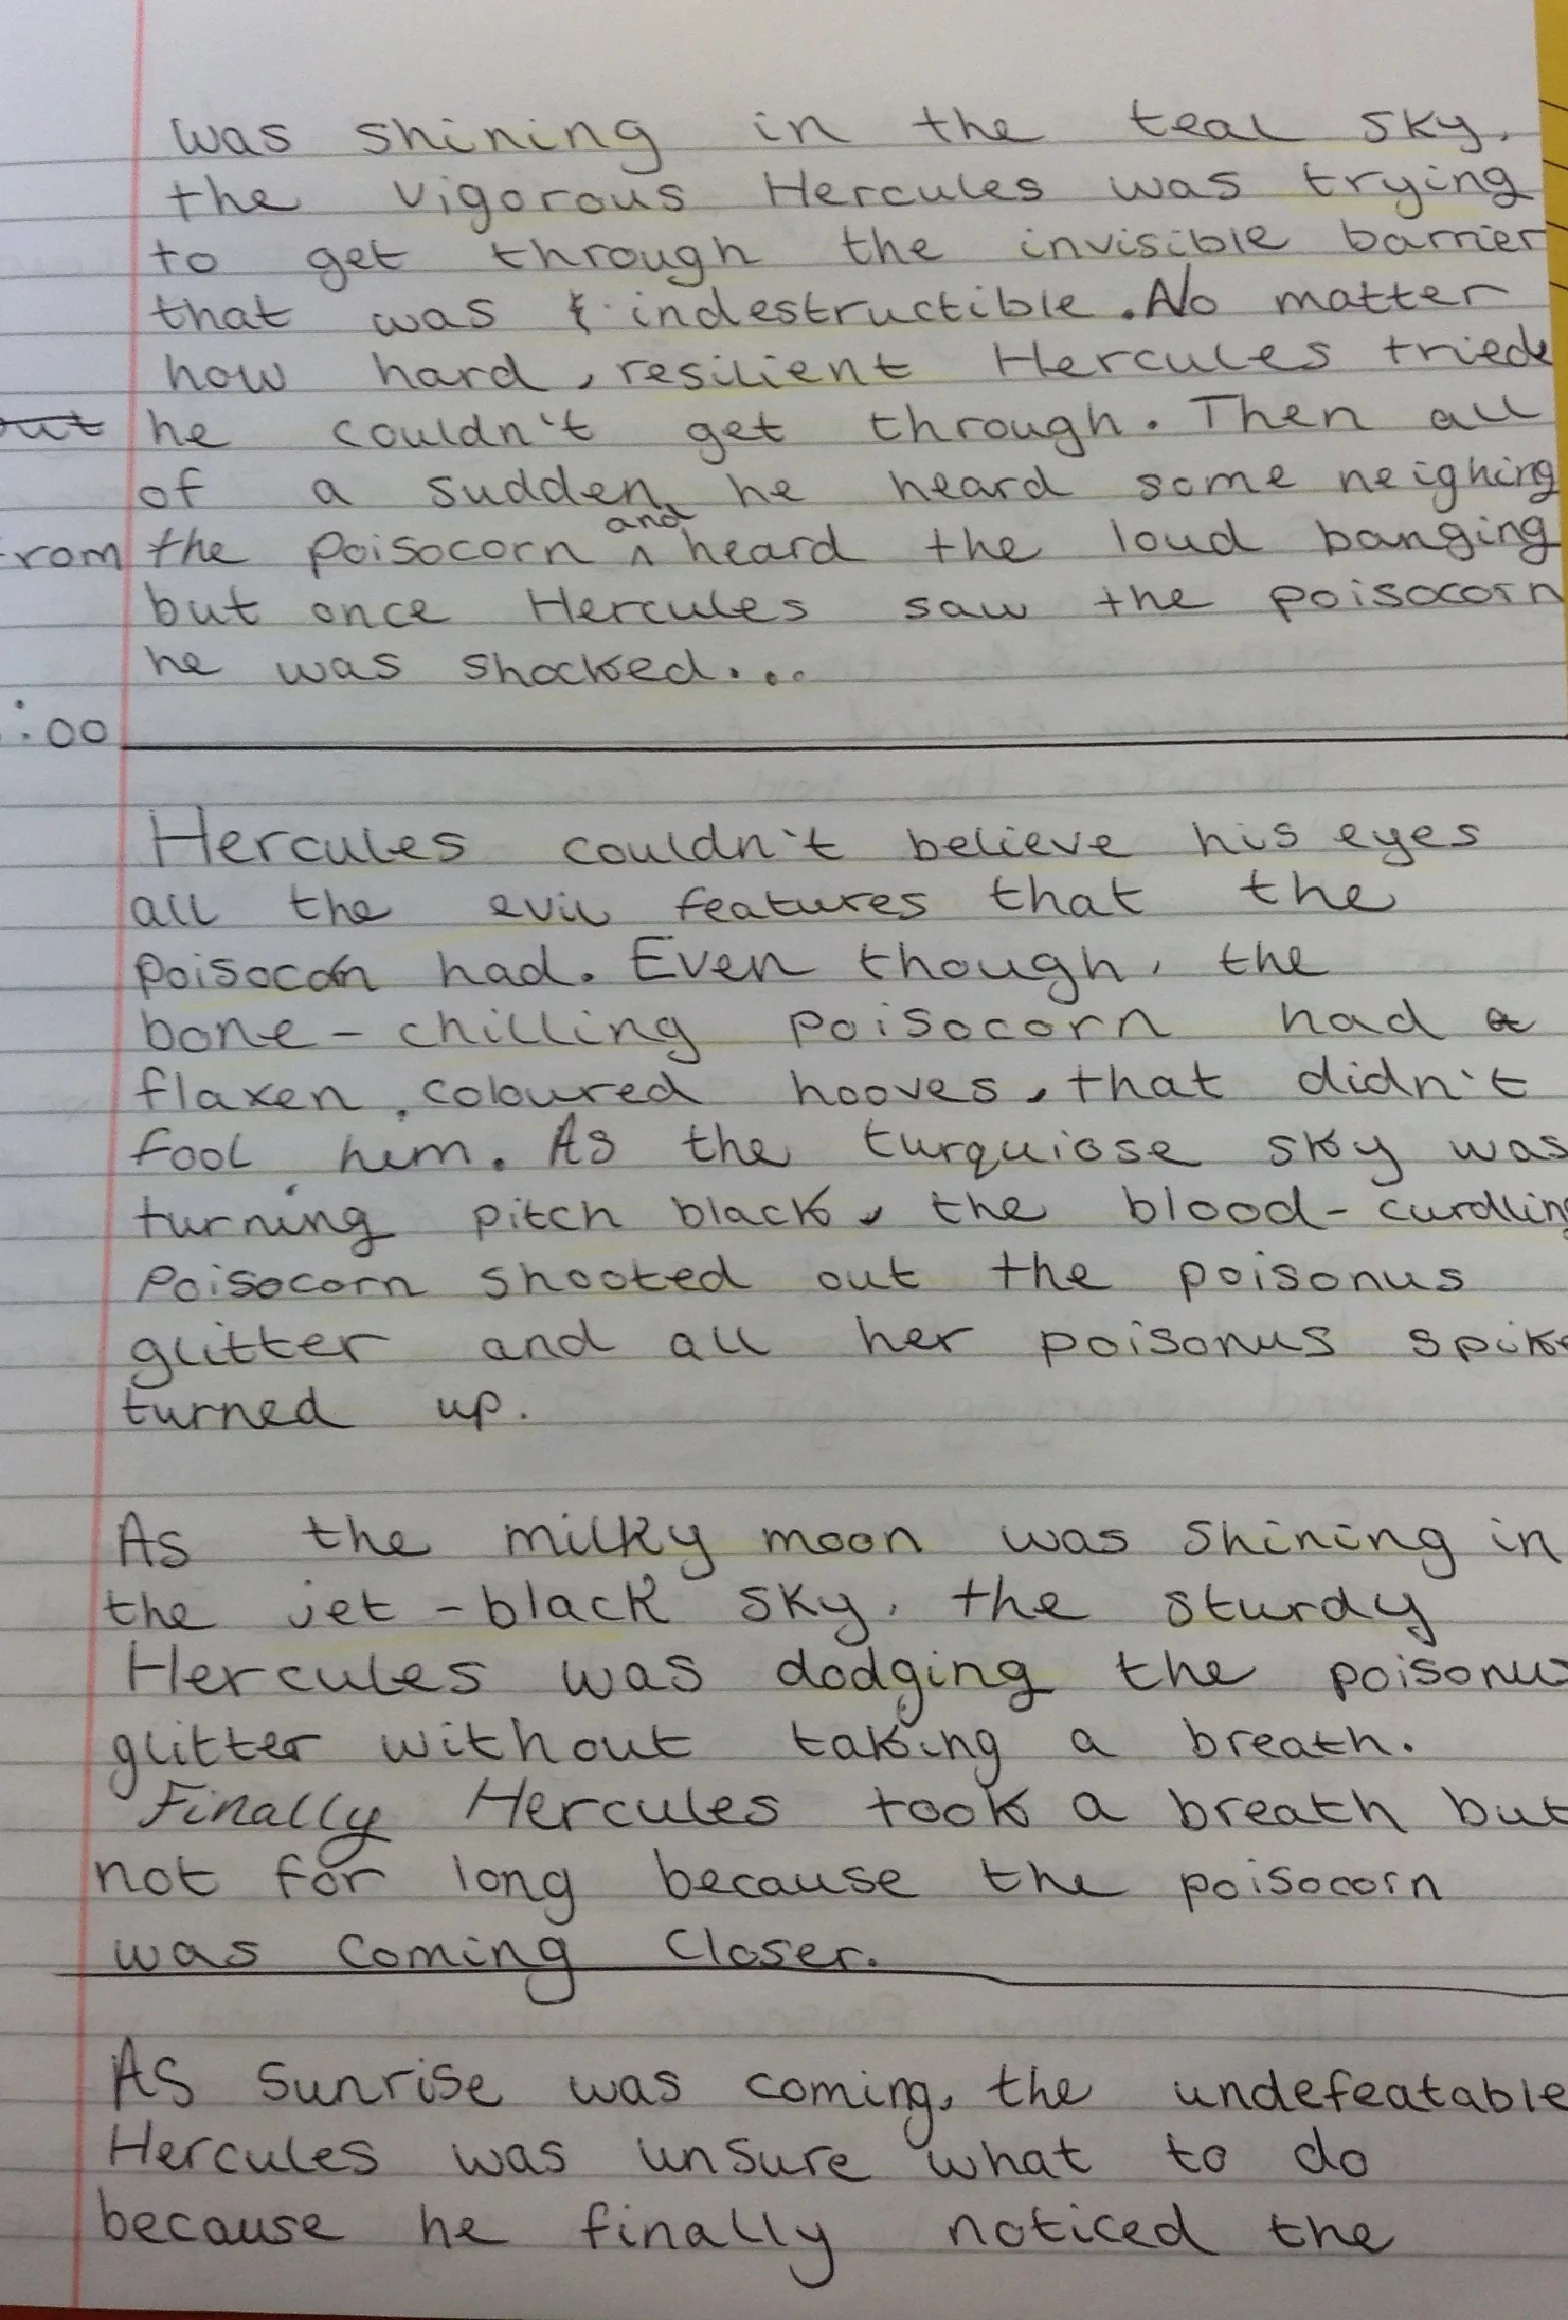 was shining in the teal sky,
the vigorous Hercules was trying
to get through the invisible barrier
that was indestructible. No matter
how hard, resilient Hercules tried
he couldn't get through. Then all
of a sudden he heard some neighing
from the poisocorn and heard the loud banging
but once Hercules saw the poisocorn
he was shocked...
:00
Hercules couldn't believe his eyes
all the evil features that the
poisocorn had. Even though, the
bone-chilling poisocorn had
flaxen, coloured hooves, that didn't
fool him. As the turquiose sky was
turning pitch black, the blood-curdling
Poisocorn shooted out the poisonus
glitter and all her poisonus spike
turned up.
As the milky moon was shining in
the jet-black sky, the sturdy
Hercules was dodging the poisonus
glitter without taking a breath.
Finally Hercules took a breath but
not for long because the poisocorn
was coming closer.
As sunrise was coming, the undefeatable
Hercules was unsure what to do
because he finally noticed the